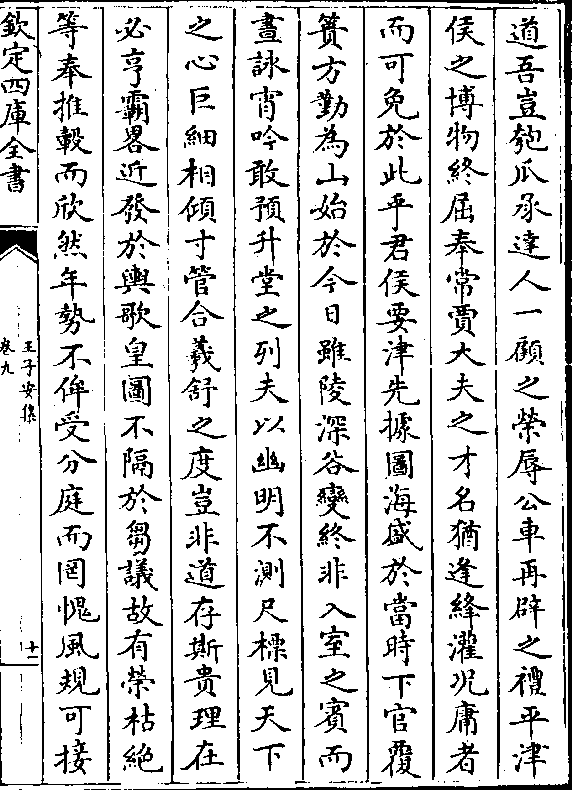 道吾豈匏瓜承達人一顧之榮辱公車再辟之禮平津
侯之博物終屈奉常賈大夫之才名猶逢絳灌况庸者
而可免於此乎君侯要津先據圖海盛於當時下官覆
簣方勤為山始於今日雖陵深谷變終非入室之賓而
晝詠宵吟敢預升堂之列夫以幽明不測尺標見天下
之心巨細相傾寸管合羲舒之度豈非道存斯貴理在
必亨霸畧近發於輿歌皇圖不隔於芻議故有榮枯絶
等奉推轂而欣然年勢不侔受分庭而罔愧風規可接
欽定四庫全書
王子安集
卷九
十二